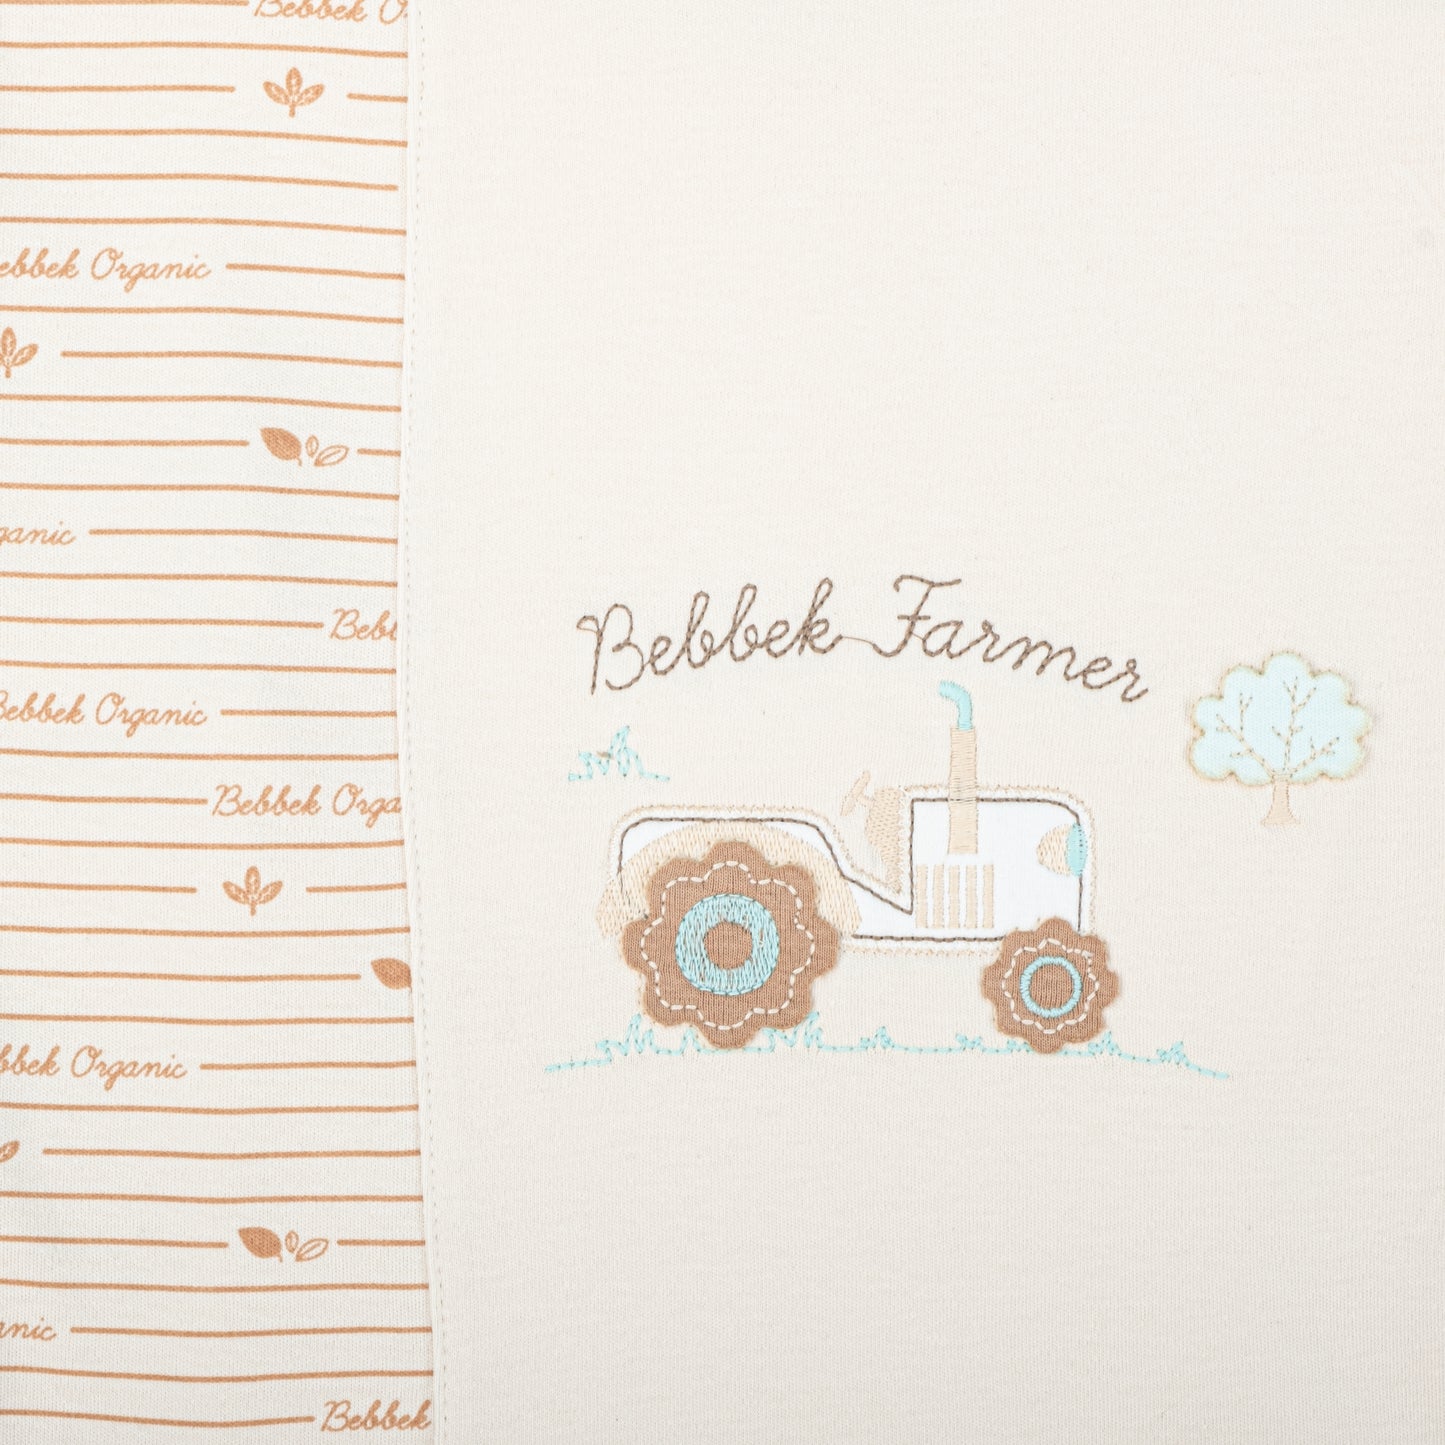 Bebbek O
ebbek Organic
ganic
Beb
Bebbek Organic
Bebbek Orga
bbek Organic
anic
Bebbek
Bebbek Farmer